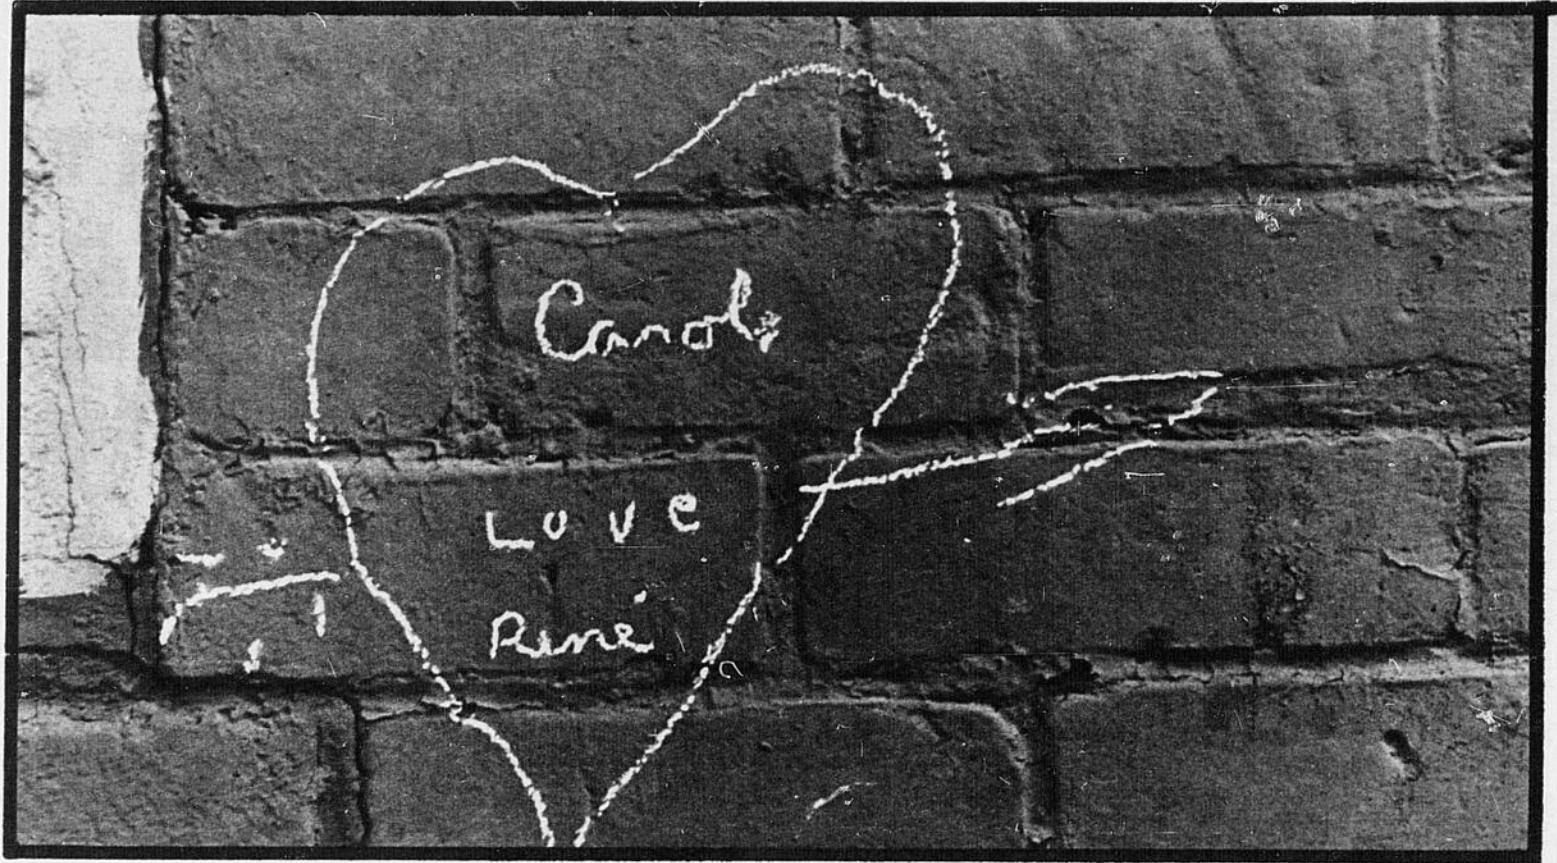 Carol
Love
René